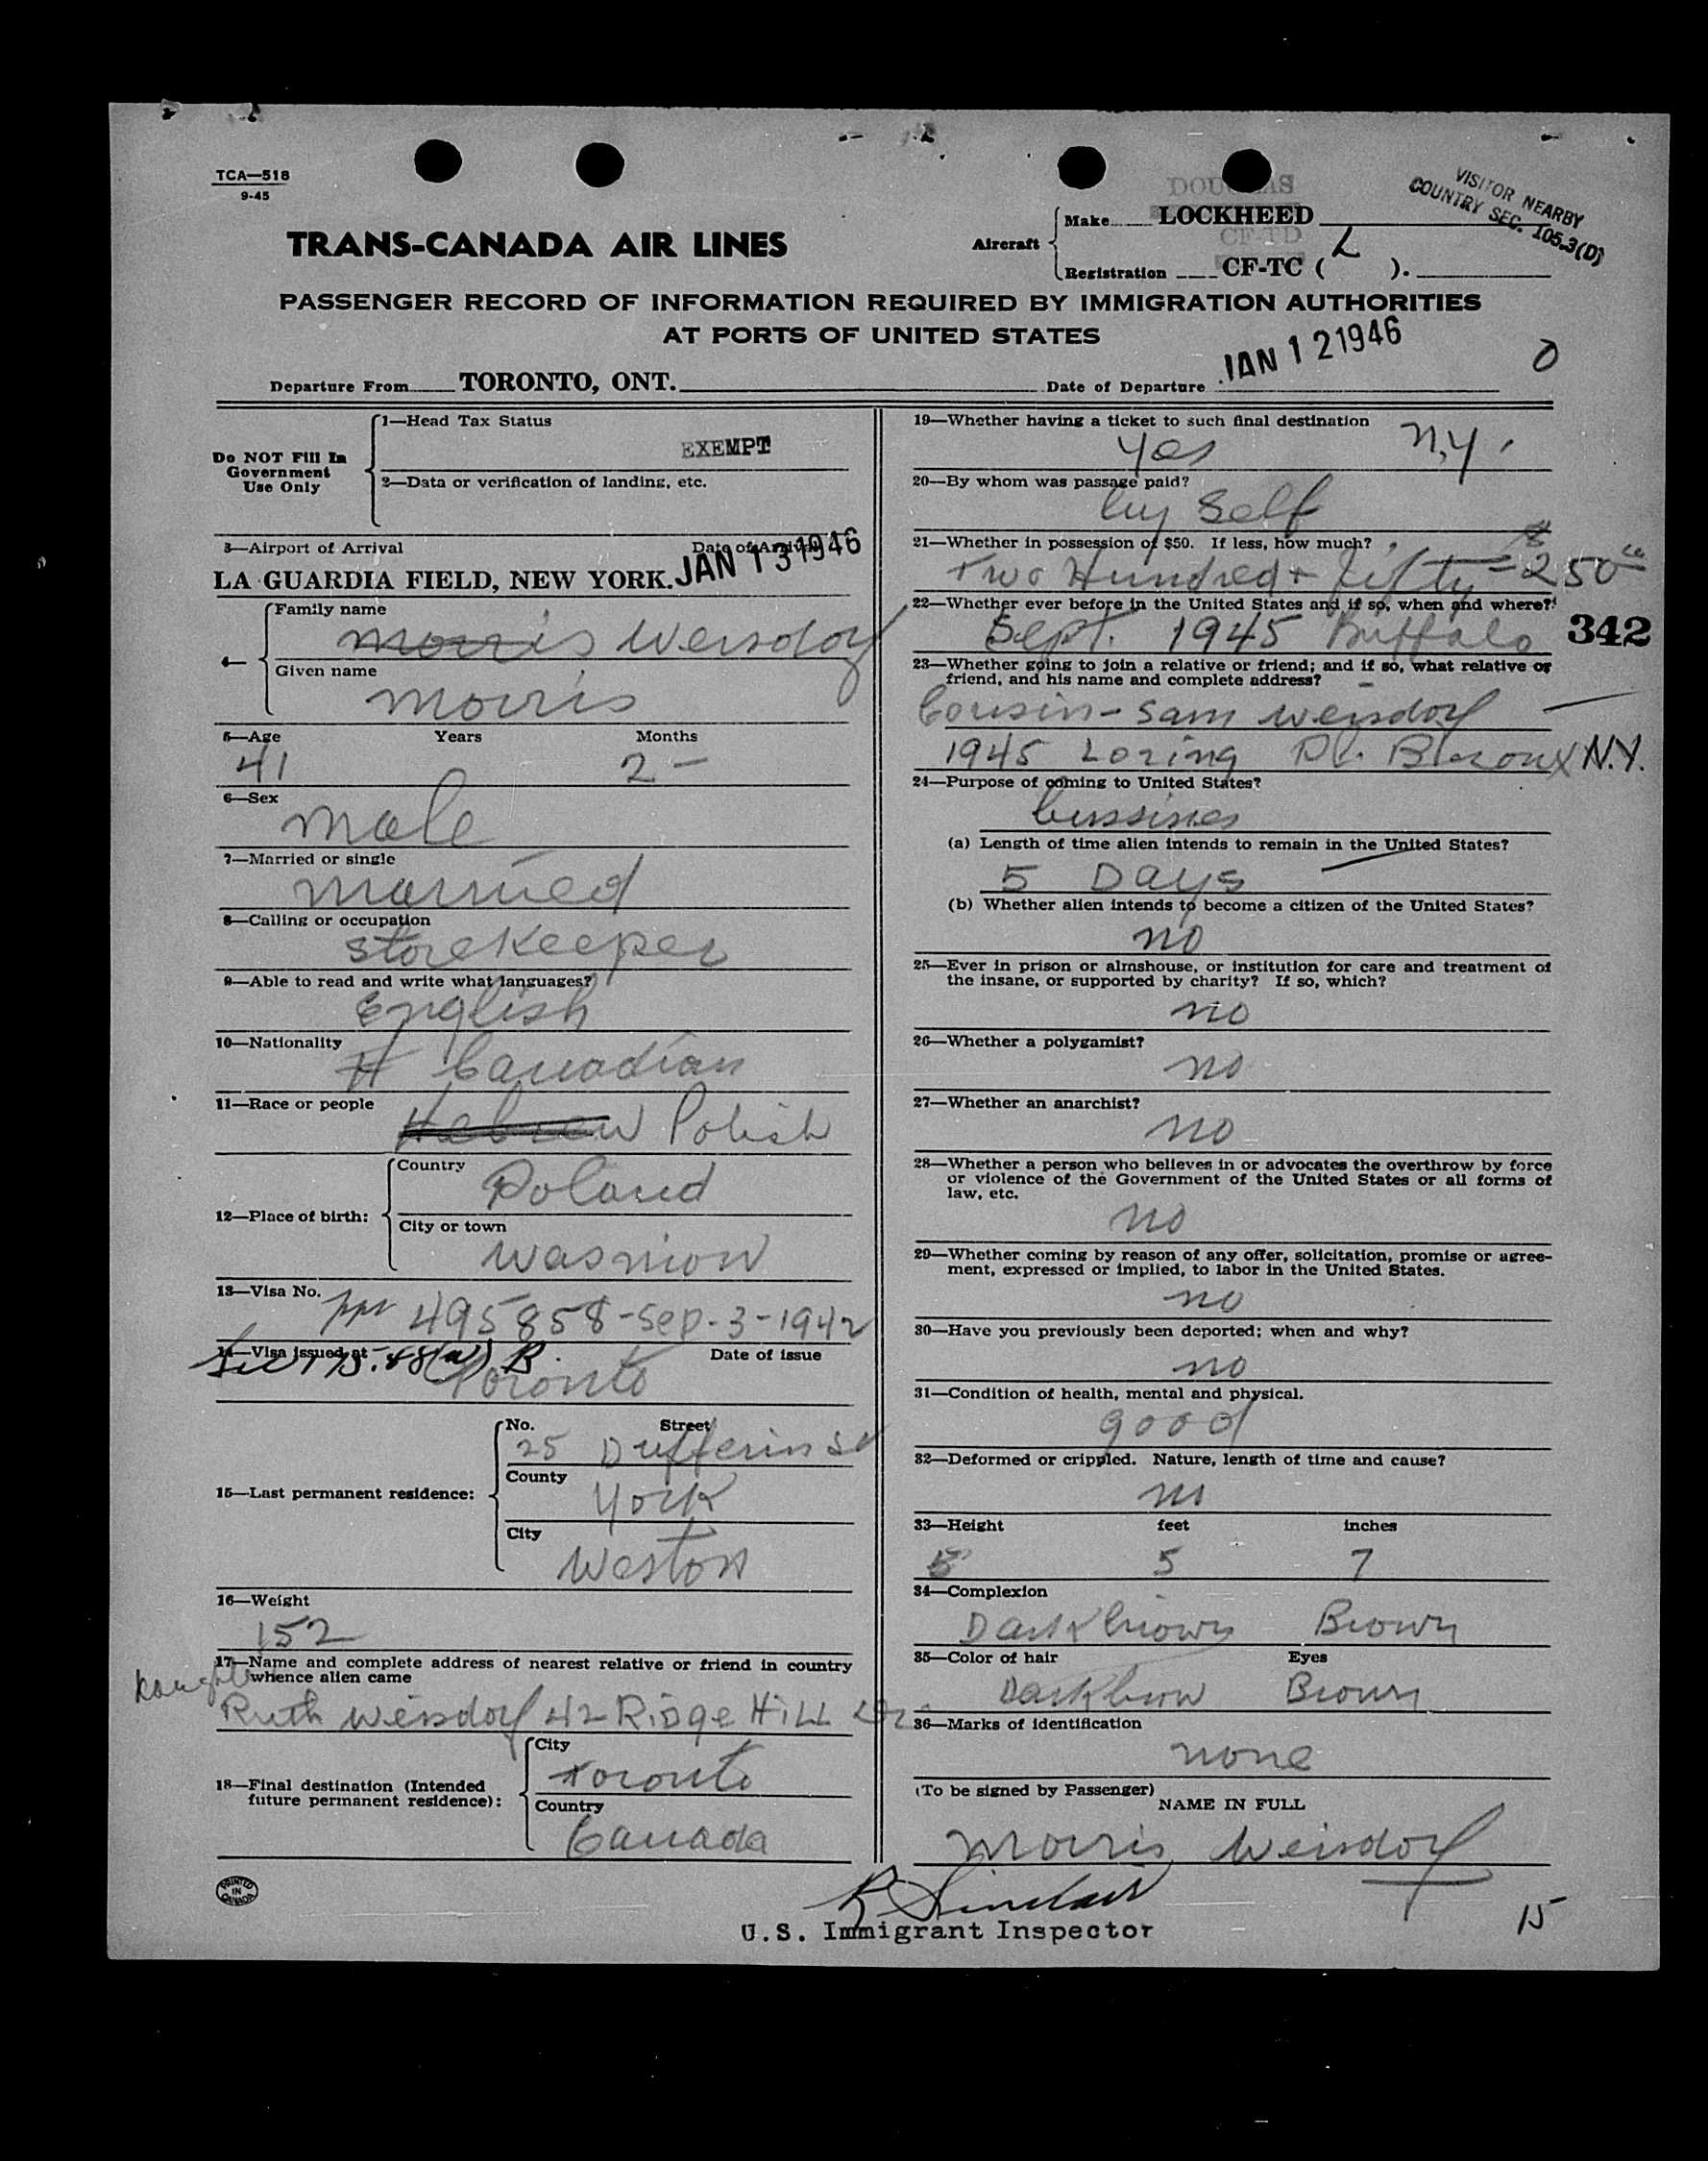 TCA—518
9-45
VISITOR NEARBY
COUNTRY SEC. 105.3(D)
DOUGLAS
Make LOCKHEED
TRANS-CANADA AIR LINES
Aircraft
CF-TD
Registration CF-TC ( L ).
PASSENGER RECORD OF INFORMATION REQUIRED BY IMMIGRATION AUTHORITIES
AT PORTS OF UNITED STATES
Departure From TORONTO, ONT. Date of Departure JAN 12 1946
0
Do NOT Fill In
Government
Use Only
1—Head Tax Status
EXEMPT
2—Data or verification of landing, etc.
3—Airport of Arrival Date of Arrival
LA GUARDIA FIELD, NEW YORK. JAN 13 1946
4—
Family name
Morris Weisdorf
Given name
Morris
5—Age Years Months
41 2 -
6—Sex
male
7—Married or single
married
8—Calling or occupation
storekeeper
9—Able to read and write what languages?
English
10—Nationality
H Canadian
11—Race or people
Hebrew Polish
12—Place of birth:
Country
Poland
City or town
Wasniow
13—Visa No.
ppr 495858-Sep.-3-1942
14—Visa issued at Date of issue
Sec 175.48(a) B.
Toronto
15—Last permanent residence:
No. Street
25 Dufferin St
County
York
City
Weston
16—Weight
152
17—Name and complete address of nearest relative or friend in country
whence alien came
Ruth Weisdorf 42 Ridge Hill Dr.
18—Final destination (Intended
future permanent residence):
City
Toronto
Country
Canada
PRINTED
IN
CANADA
19—Whether having a ticket to such final destination
yes N.Y.
20—By whom was passage paid?
by Self
21—Whether in possession of $50. If less, how much?
Two Hundred + fifty - $250
22—Whether ever before in the United States and if so, when and where?
Sept. 1945 Buffalo
342
23—Whether going to join a relative or friend; and if so, what relative or
friend, and his name and complete address?
Cousin - Sam Weisdorf
1945 Loring Pl. Bronx N.Y.
24—Purpose of coming to United States?
bussines
(a) Length of time alien intends to remain in the United States?
5 Days
(b) Whether alien intends to become a citizen of the United States?
no
25—Ever in prison or almshouse, or institution for care and treatment of
the insane, or supported by charity? If so, which?
no
26—Whether a polygamist?
no
27—Whether an anarchist?
no
28—Whether a person who believes in or advocates the overthrow by force
or violence of the Government of the United States or all forms of
law, etc.
no
29—Whether coming by reason of any offer, solicitation, promise or agree-
ment, expressed or implied, to labor in the United States.
no
30—Have you previously been deported; when and why?
no
31—Condition of health, mental and physical.
good
32—Deformed or crippled. Nature, length of time and cause?
no
33—Height feet inches
5 5 7
34—Complexion
Dark brown Brown
35—Color of hair Eyes
Dark brow Brown
36—Marks of identification
none
(To be signed by Passenger)
NAME IN FULL
Morris Weisdorf
R Sinclair
U.S. Immigrant Inspector
15